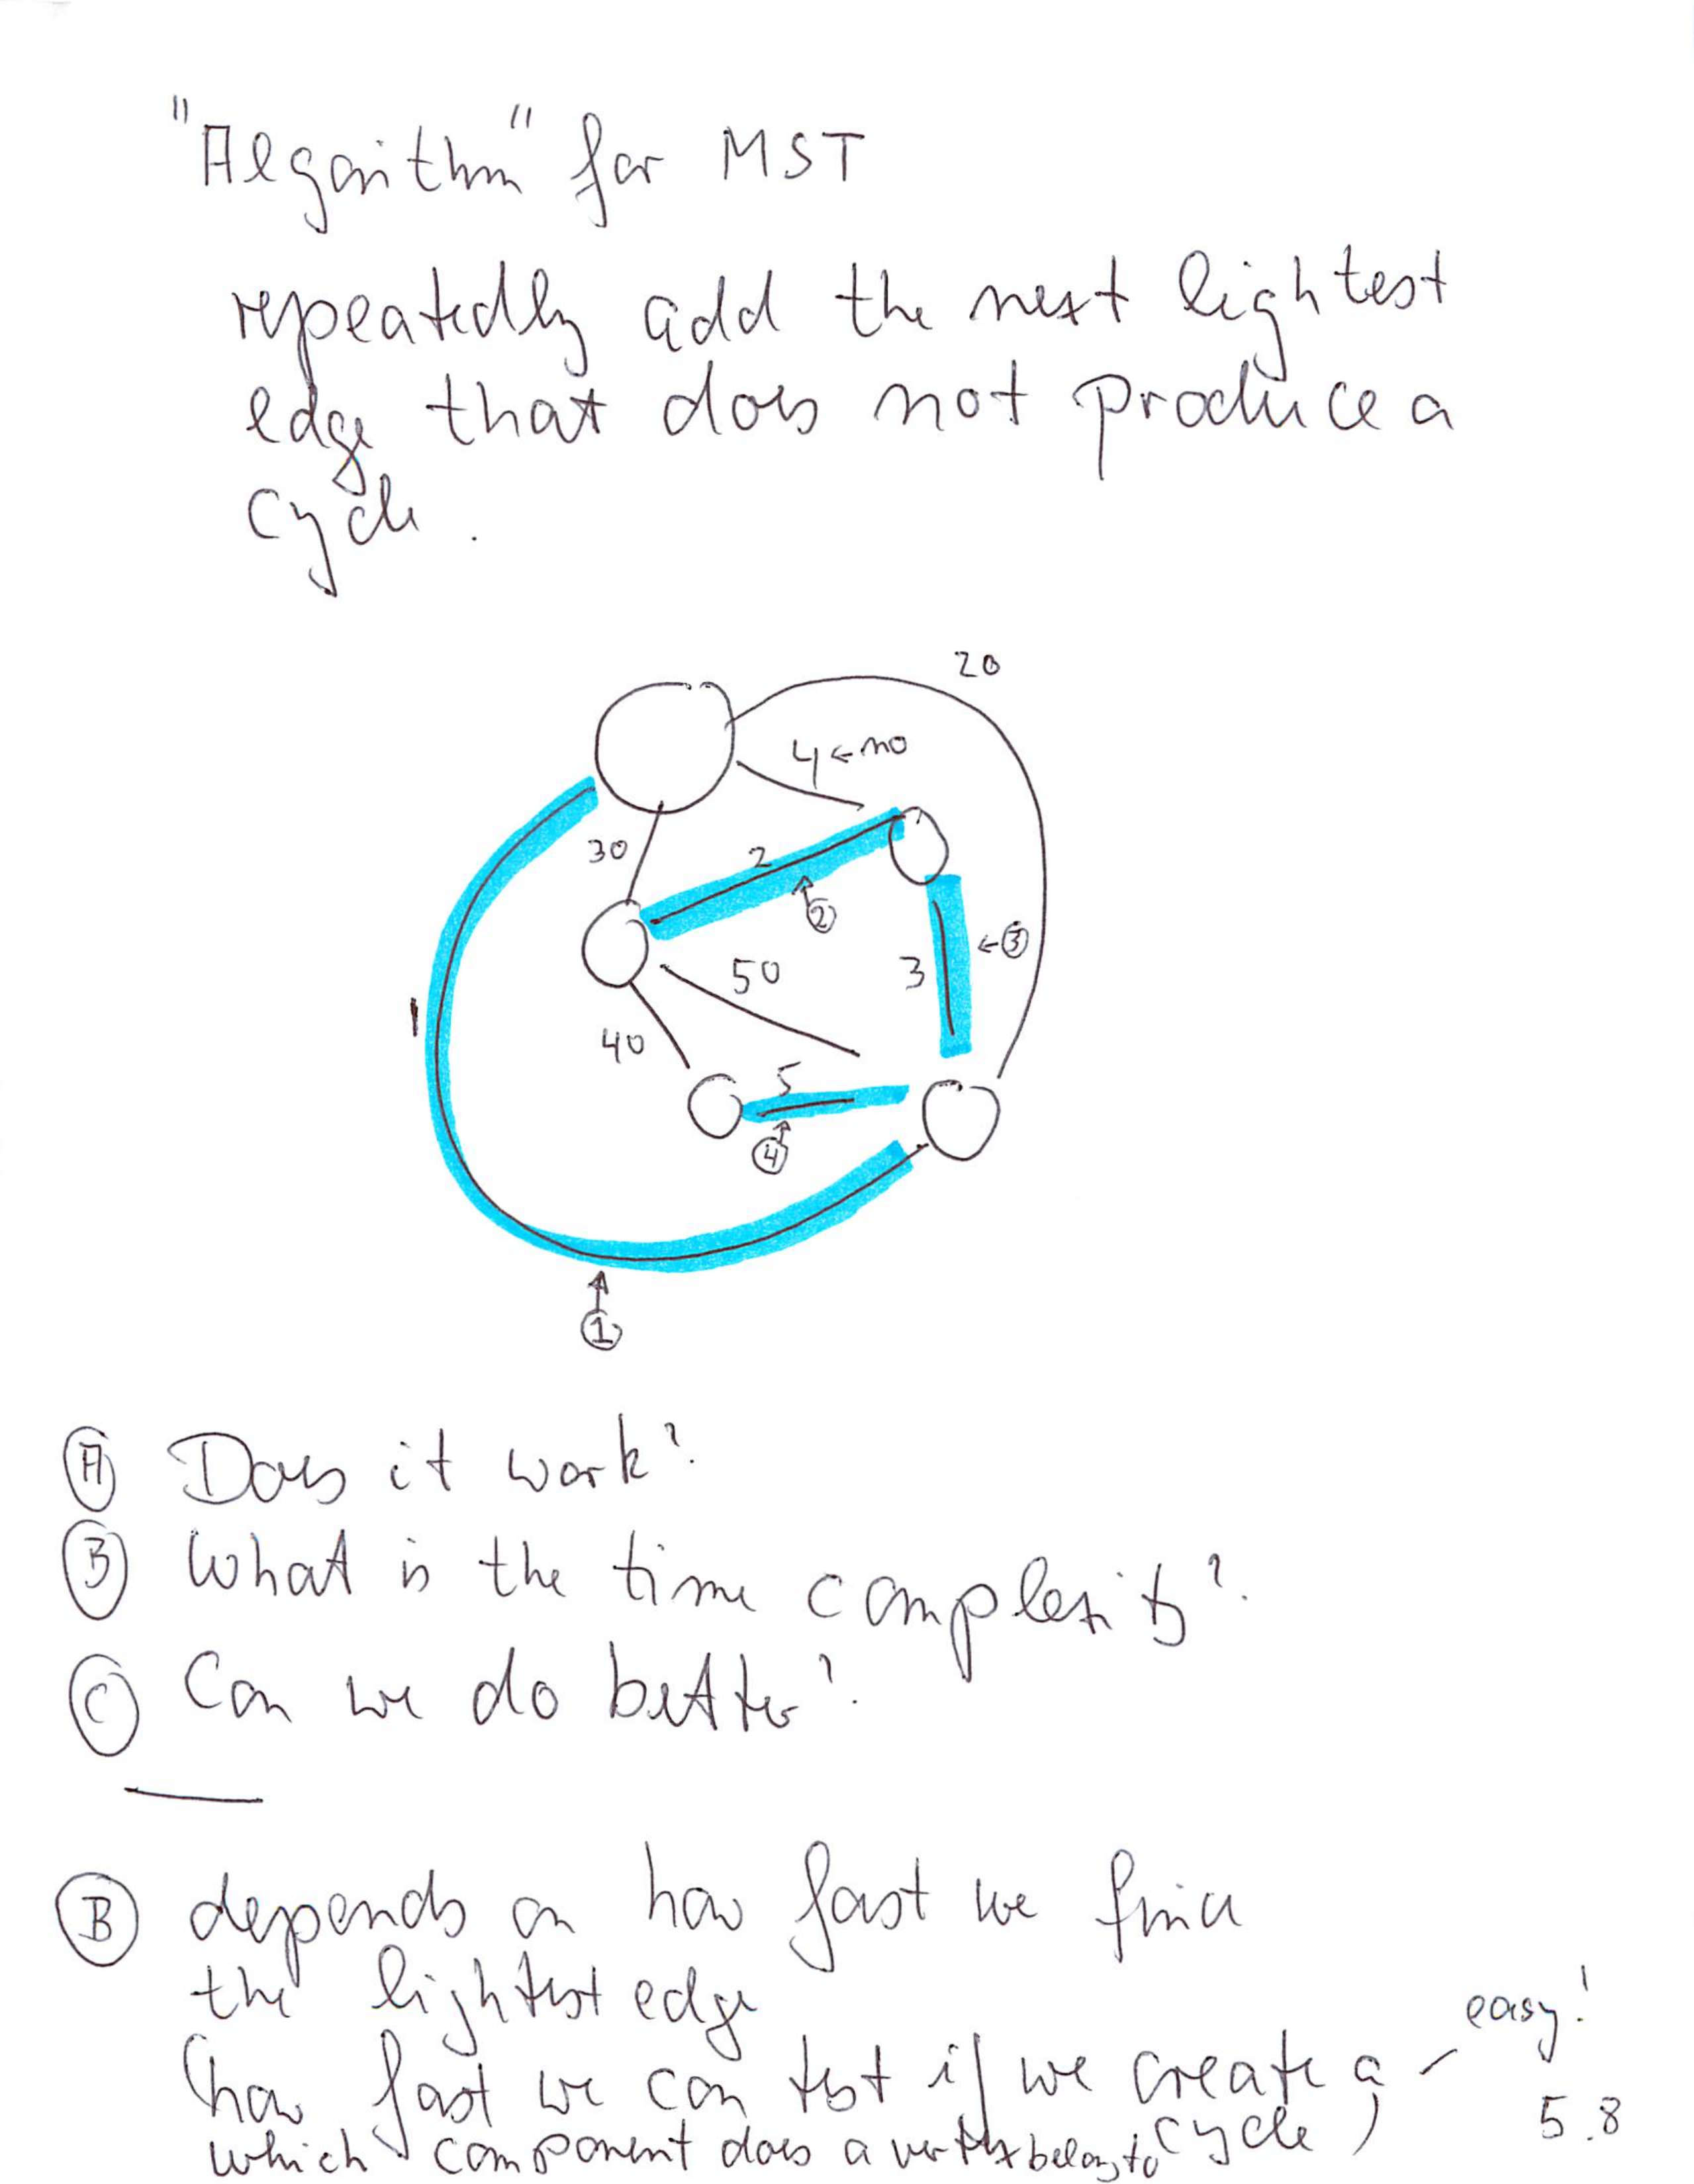 "Algorithm" for MST
repeatedly add the next lightest
edge that does not produce a
cycle.
20
4 ← no
30
2
②
← ③
3
50
1
40
5
④
①
Ⓐ Does it work?
Ⓑ What is the time complexity?
Ⓒ Can we do better?
Ⓑ depends on how fast we find
the lightest edge
easy!
(how fast we can test if we create a
cycle)
which component does a vertex belong to
5.8